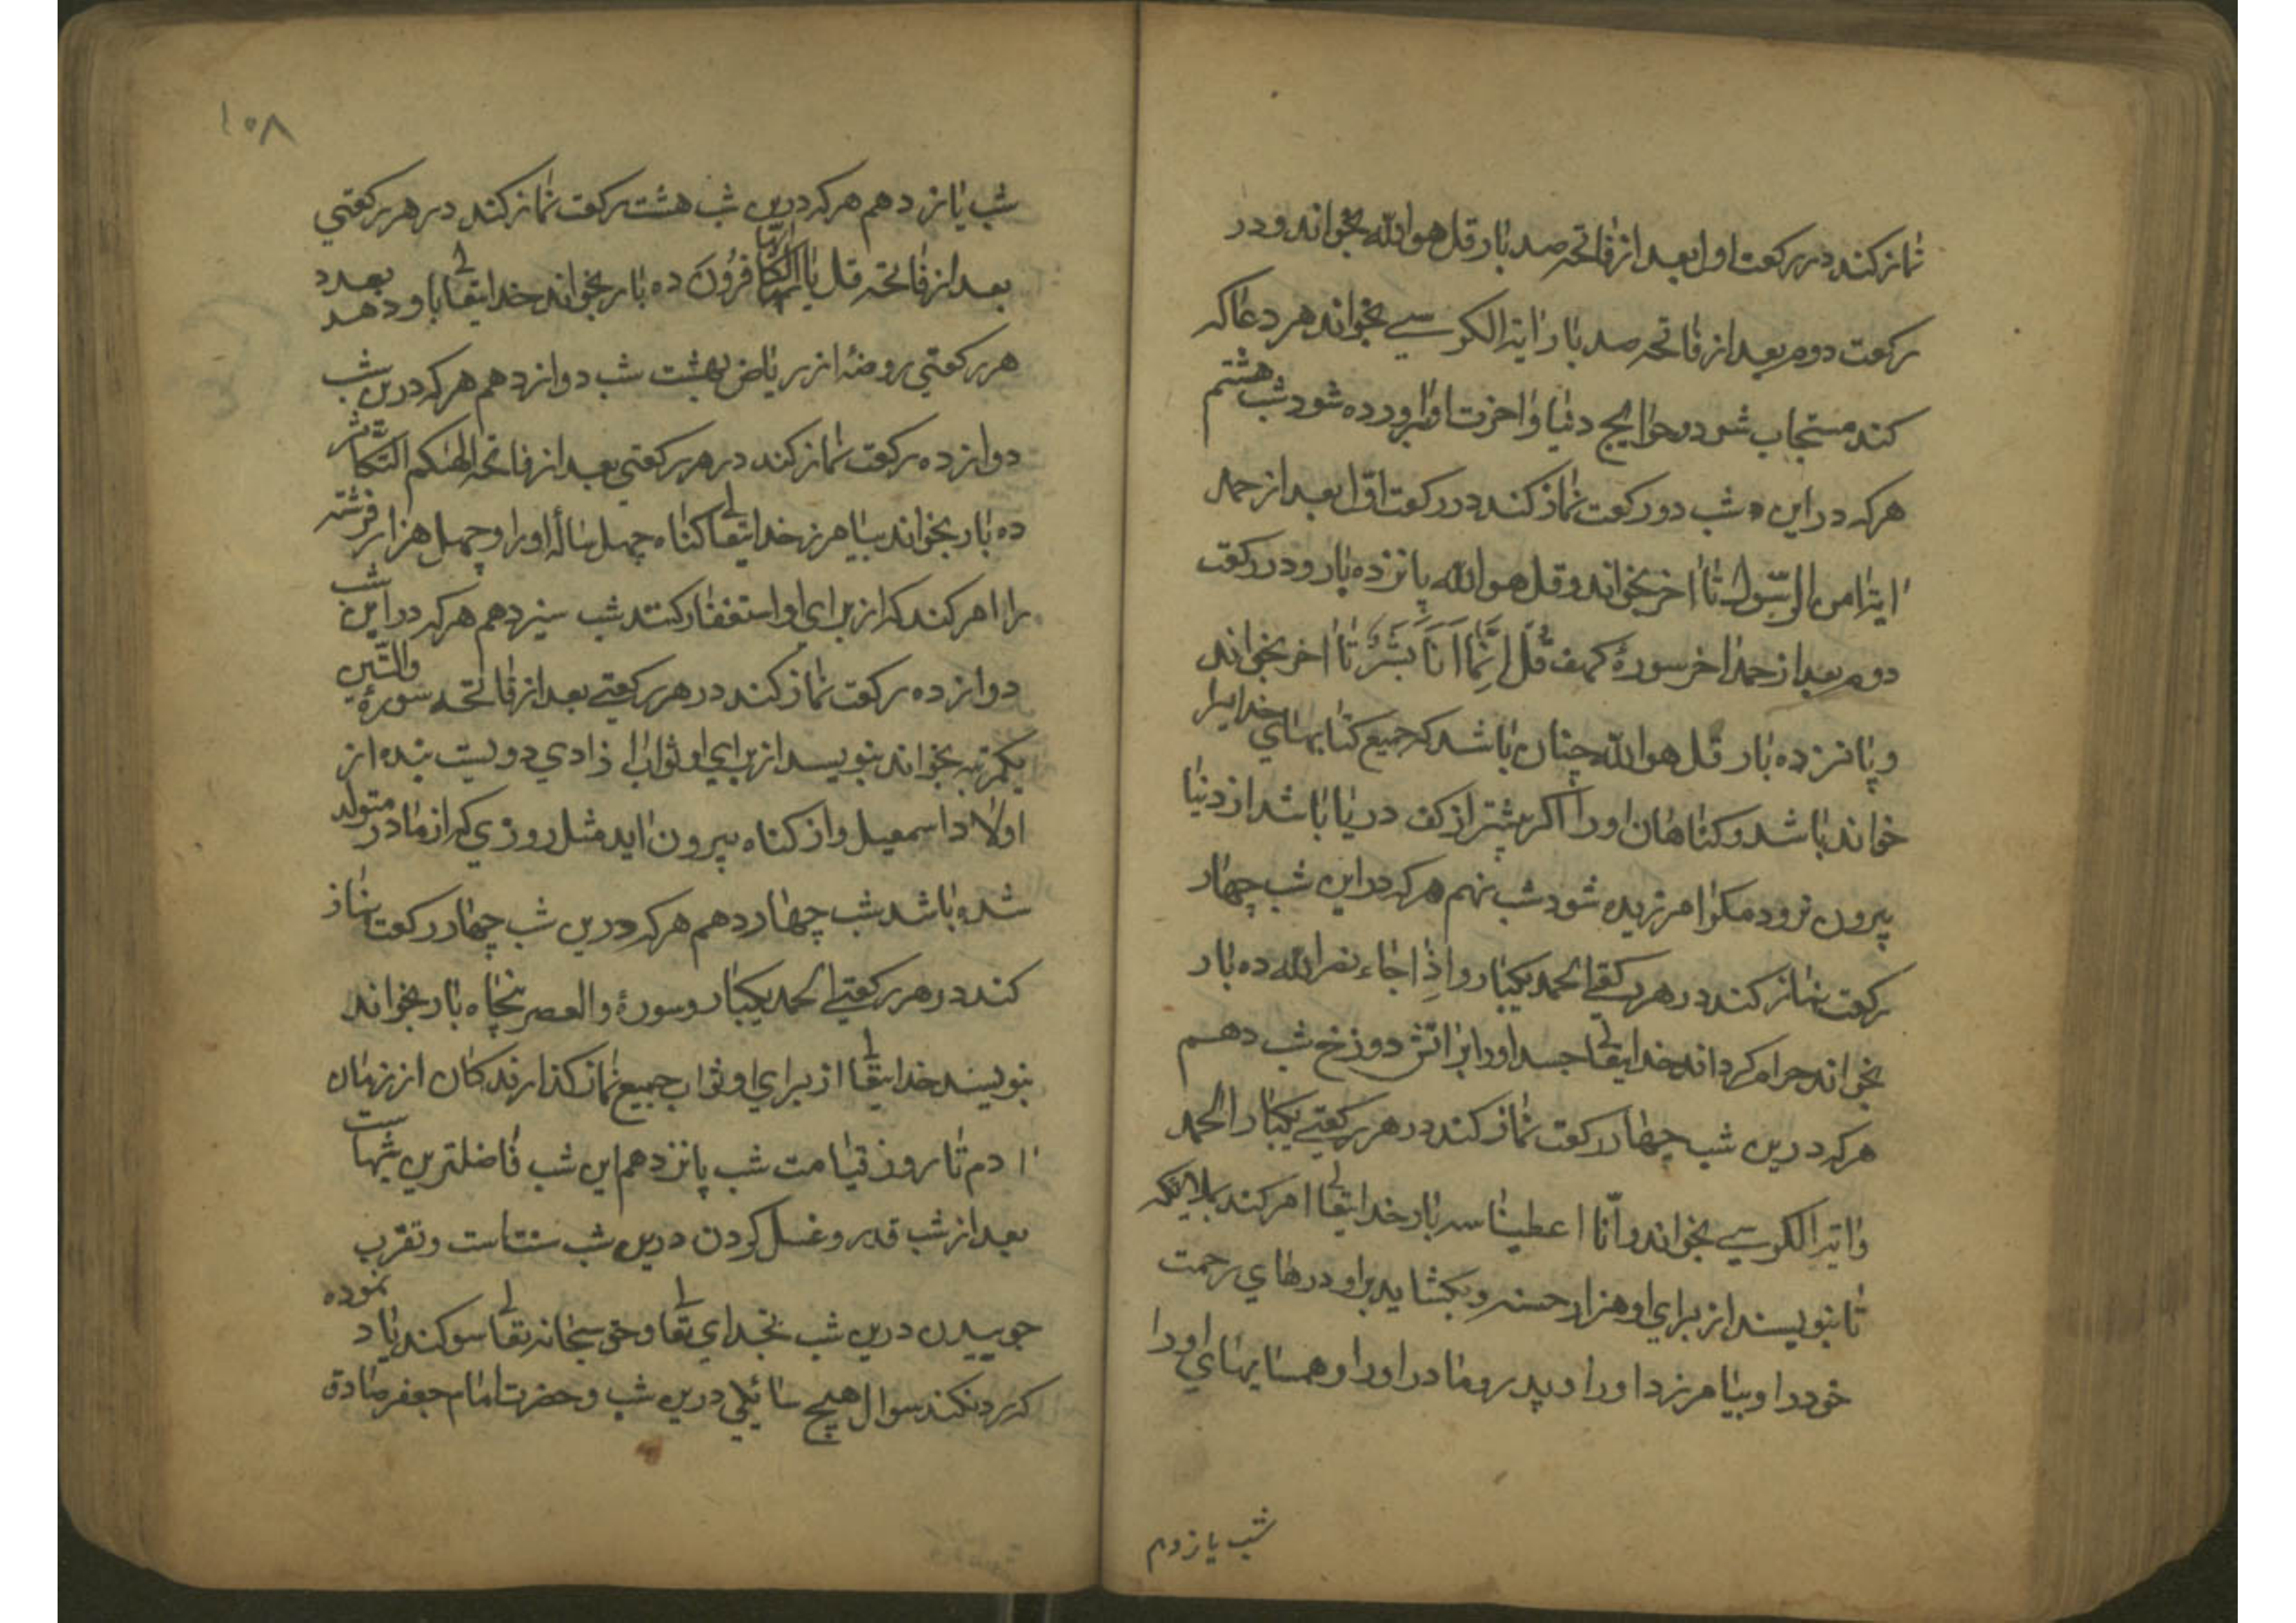 نماز کند در رکعت اول بعد از فاتحه صد بار قل هو الله بخواند و در
رکعت دوم بعد از فاتحه صد بار ایة الکرسي بخواند هر دعا که
کند مستجاب شود و حوایج دنیا و اخرت او براورده شود شب هشتم
هرکه در این شب دو رکعت نماز کند در رکعت اوّل بعد از حمد
ایة امن الرّسول تا اخر بخواند و قل هو الله پانزده بار و در رکعت
دوم بعد از حمد اخر سورهٔ کهف قُل اِنَّمٰا اَنَا بَشَرٌ تا اخر بخواند
و پانزده بار قل هو الله چنان باشد که جمیع کتابهاي خدایرا
خوانده باشد و کناهان او را اکر بیشتر از کف دریا باشد از دنیا
بیرون نرود مکر امرزیده شود شب نهم هرکه در این شب چهار
رکعت نماز کند در هر رکعتي الحمد یکبار و اذا جاء نصر الله ده بار
بخواند حرام کرداند خدایتعالی جسد او را بر اتش دوزخ شب دهم
هرکه درین شب چهار رکعت نماز کند در هر رکعتي یکبار الحمد
و ایة الکرسي بخواند و انّا اعطینا سه بار خدایتعالی امر کند بملایکه
تا بنویسند از براي او هزار حسنه و بکشاید بر او درهاي رحمت
خود را و بیامرزد او را و پدر و مادر او را و همسایهاي او را
شب یازدهم
١٠٨
شب یازدهم هرکه درین شب هشت رکعت نماز کند در هر رکعتي
بعد از فاتحه قل یا ایّها الکافرُونَ ده بار بخواند خدایتعالی باو دهد بعدد
هر رکعتي روضهٔ از ریاض بهشت شب دوازدهم هرکه درین شب
دوازده رکعت نماز کند در هر رکعتي بعد از فاتحه الهٰیکم التّکاثر
ده بار بخواند بیامرزد خدایتعالی کناه چهل ساله او را و چهل هزار فرشته
را امر کند که از براي او استغفار کنند شب سیزدهم هرکه در این شب
دوازده رکعت نماز کند در هر رکعتي بعد از فاتحه سورهٔ والتّین
یکمرتبه بخواند بنویسد از براي او ثواب ازادي دویست بنده از
اولاد اسمعیل و از کناه بیرون اید مثل روزي که از مادر متولد
شده باشد شب چهاردهم هرکه درین شب چهار رکعت نماز
کند در هر رکعتي الحمد یکبار و سورهٔ والعصر پنجاه بار بخواند
بنویسد خدایتعالی از براي او ثواب جمیع نماز کذارندکان از زمان
ادم تا روز قیامت شب پانزدهم این شب فاضلترین شبهاست
بعد از شب قدر و غسل کردن درین شب سنتاست و تقرب
جوییدن درین شب بخداي تعالی و حق سبحانه تعالی سوکند یاد نموده
که رد نکند سوال هیچ سائیلي درین شب و حضرت امام جعفر صادق